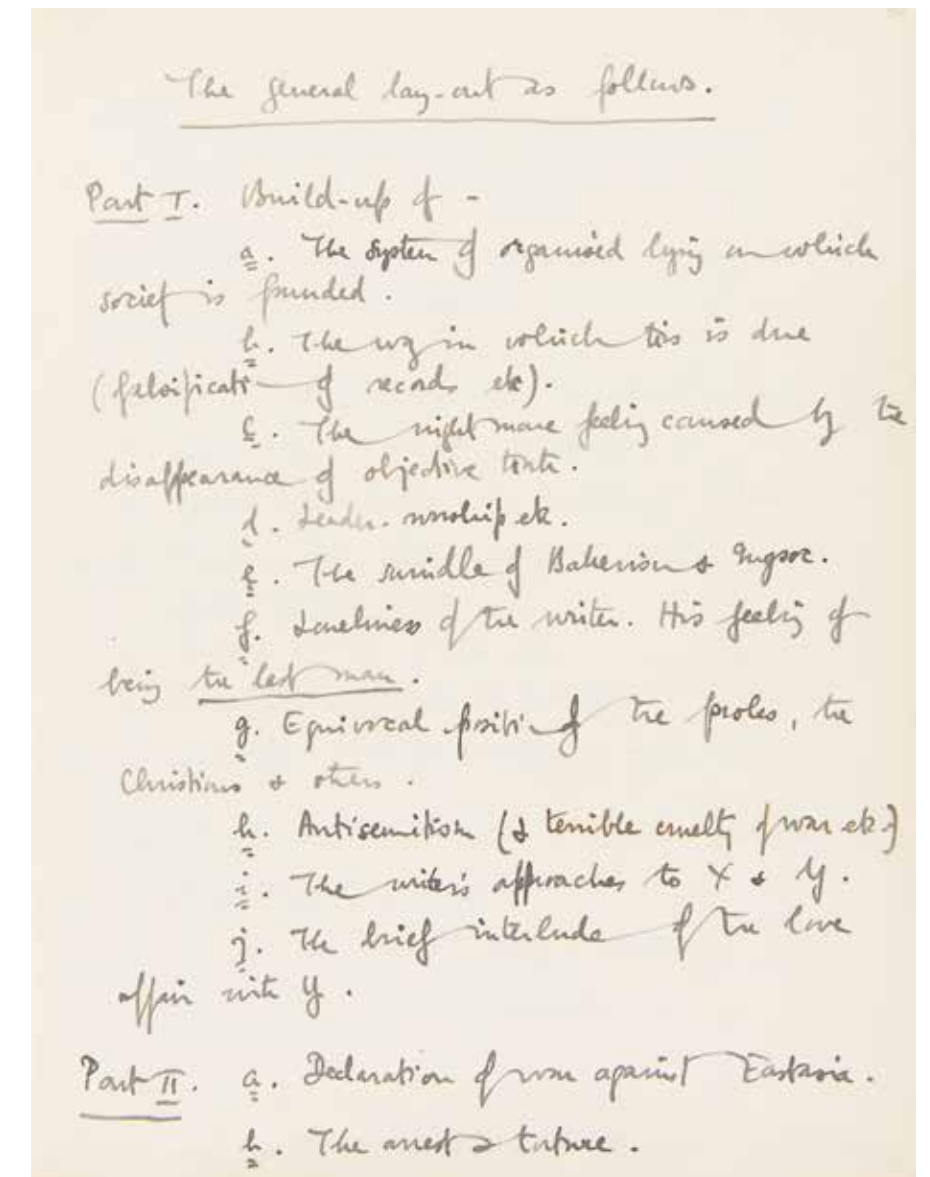 The general lay-out as follows.
Part I. Build-up of -
a. The system of organised lying on which
society is founded.
b. The way in which this is done
(falsification of records etc).
c. The nightmare feeling caused by the
disappearance of objective truth.
d. Leader-worship etc.
e. The swindle of Bakerism & Ingsoc.
f. Loneliness of the writer. His feeling of
being the last man.
g. Equivocal position of the proles, the
Christians & others.
h. Antisemitism (& terrible cruelty of war etc.)
i. The writer's approaches to X & Y.
j. The brief interlude of the love
affair with Y.
Part II. a. Declaration of war against Eastasia.
b. The arrest & torture.